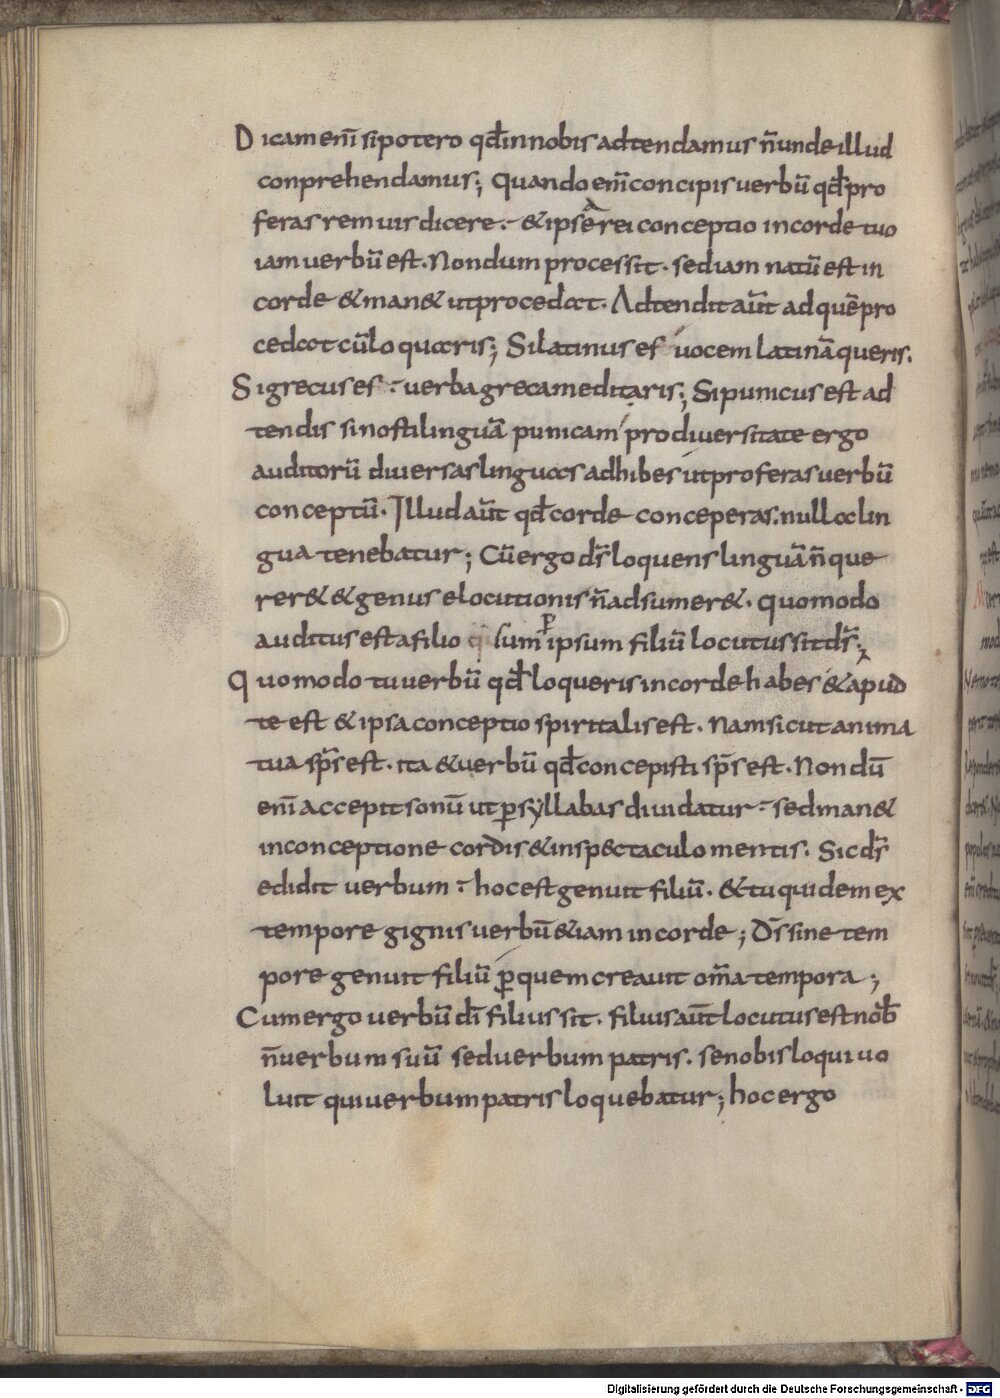 Dicam enī si potero qđ in nobis adtendamus n̄ unde illud
conprehendamus; Quando enī concipis uerbū qđ pro
feras rem uis dicere. & ipsa rei conceptio in corde tuo
iam uerbū est. Nondum processit. sed iam natū est in
corde & man& ut procedat. Adtendit aūt ad quē pro
cedat cū lo quaeris; Si latinus es uocem latinā queris.
Si grecus es uerba greca meditaris; Si punicus est ad
tendis si nosti linguā punicam pro diuersitate ergo
auditorū diuersas linguas adhibes ut proferas uerbū
conceptū. Illud aūt qđ corde conceperas. nulla lin
gua tenebatur; Cū ergo d̄s loquens linguā n̄ que
rer& & genus elocutionis n̄ adsumer&. quomodo
auditus est a filio sum ipsum filiū locutus sit d̄s;
Quomodo tu uerbū qđ loqueris in corde habes & apud
te est & ipsa conceptio spiritalis est. Nam sicut anima
tua sp̄s est. ita & uerbū qđ concepisti sp̄s est. Nondū
enī accepit sonū ut ꝑ syllabas diuidatur sed man&
in conceptione cordis & in spectaculo mentis. Sic d̄s
edidit uerbum hoc est genuit filiū. & tu quidem ex
tempore gignis uerbū &iam in corde; D̄s sine tem
pore genuit filiū ꝑ quem creauit om̄a tempora;
Cum ergo uerbū dī filius sit. filius aūt locutus est nob̄
n̄ uerbum suū sed uerbum patris. se nobis loqui uo
luit qui uerbum patris loquebatur; hoc ergo
Digitalisierung gefördert durch die Deutsche Forschungsgemeinschaft - DFG